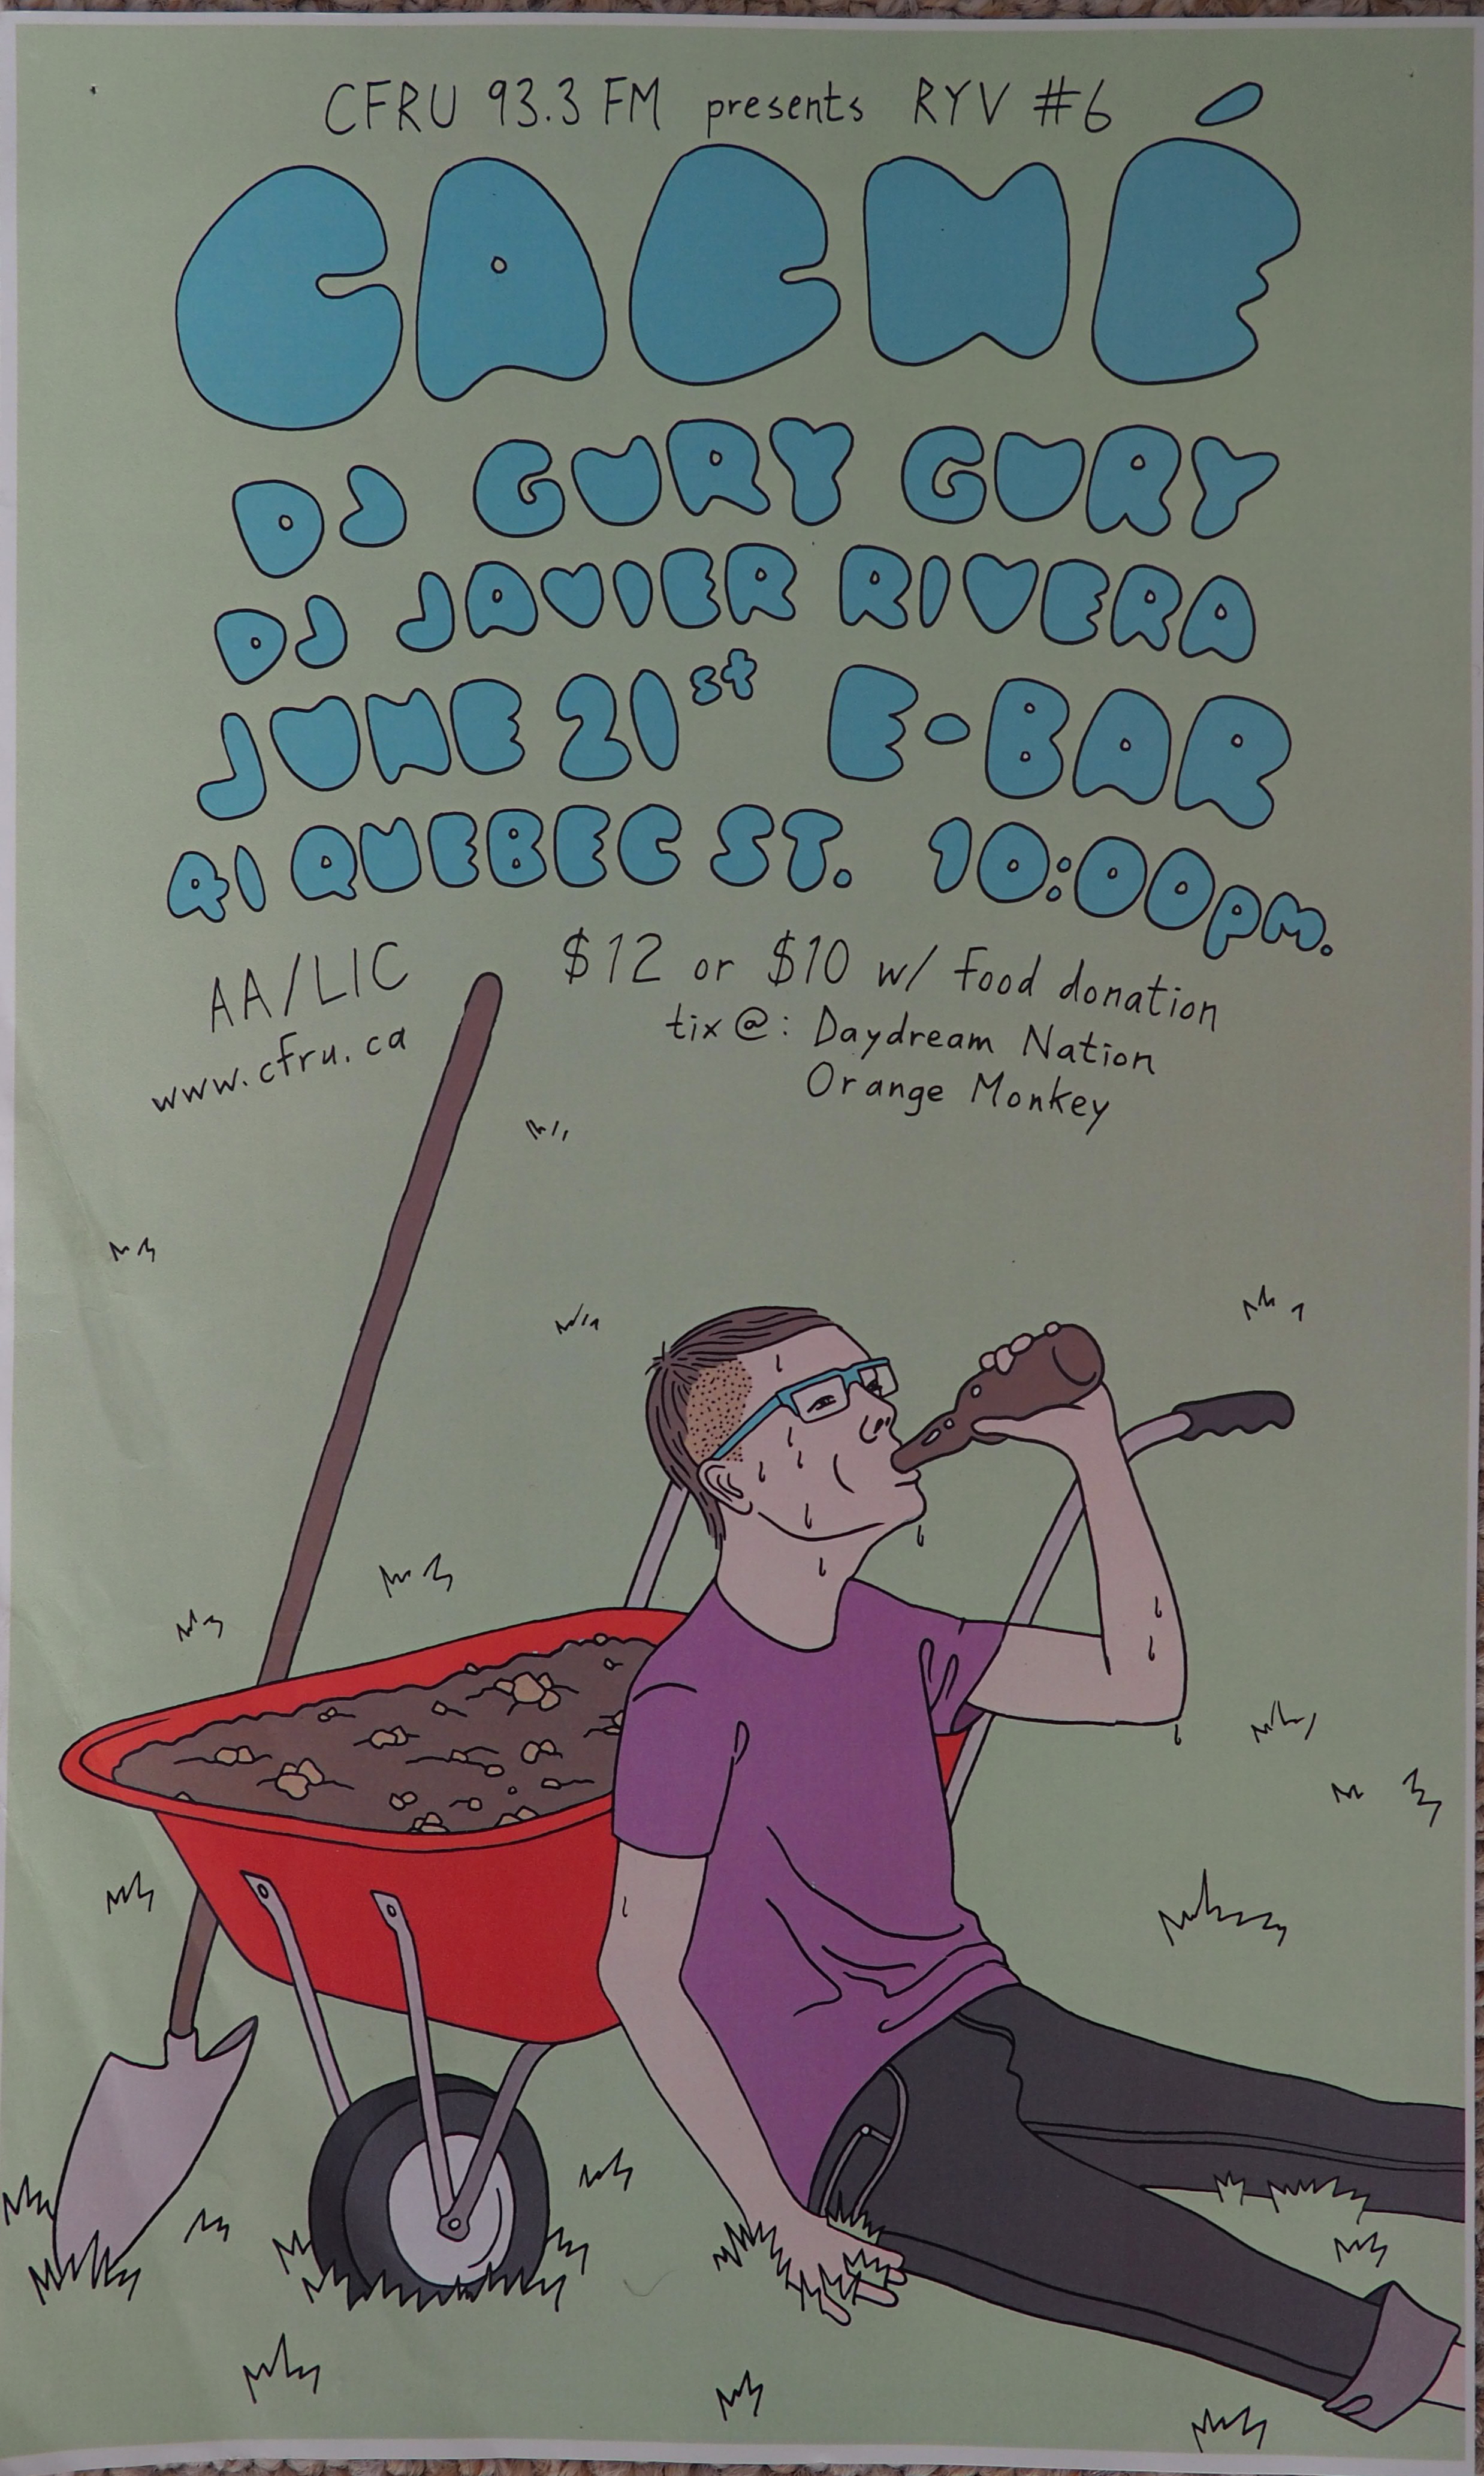 CFRU 93.3 FM presents RYV #6
CACHÉ
DJ GURY GURY
DJ JAVIER RIVERA
JUNE 21st E-BAR
41 QUEBEC ST. 10:00pm.
AA/LIC
www.cfru.ca
$12 or $10 w/ food donation
tix @: Daydream Nation
Orange Monkey